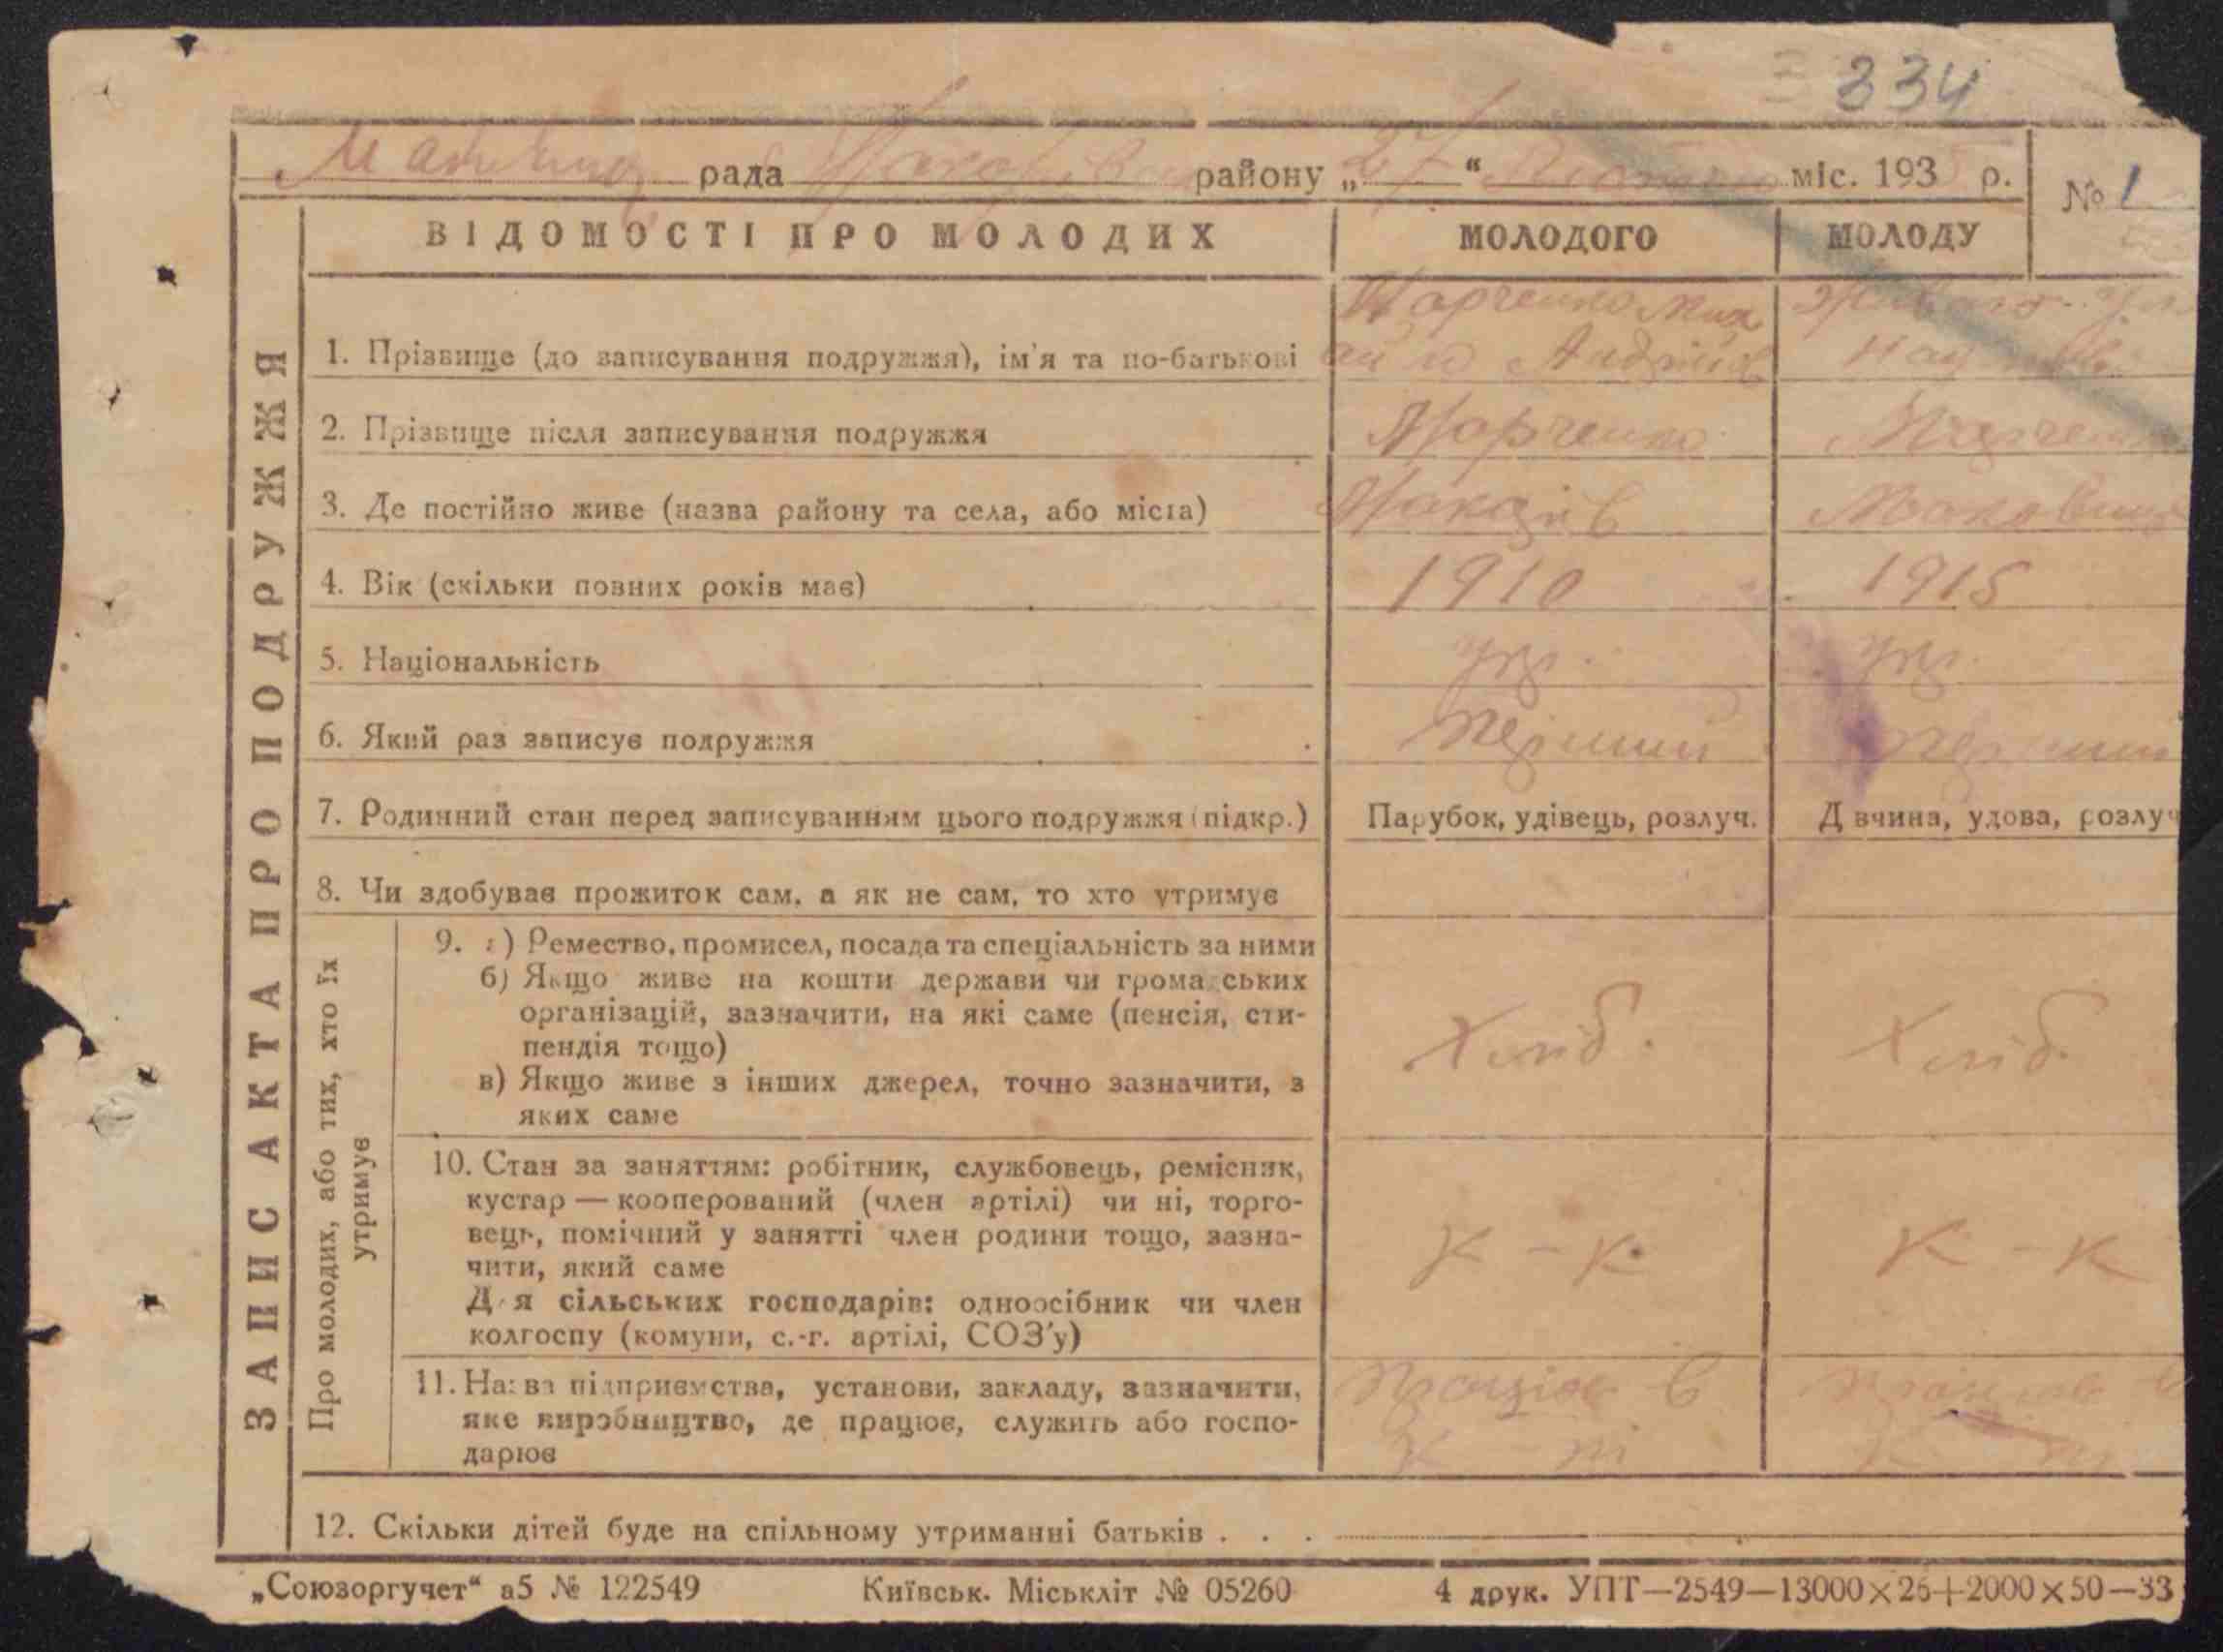 334
рада району „27“ міс. 193 р.
№ 1
ЗАПИС АКТА ПРО ПОДРУЖЖЯ
ВІДОМОСТІ ПРО МОЛОДИХ МОЛОДОГО МОЛОДУ
1. Прізвище (до записування подружжя), ім'я та по-батькові
2. Прізвище після записування подружжя
3. Де постійно живе (назва району та села, або міста)
4. Вік (скільки повних років має) 1910 1915
5. Національність укр. укр.
6. Який раз записує подружжя перший перший
7. Родинний стан перед записуванням цього подружжя (підкр.) Парубок, удівець, розлуч. Дівчина, удова, розлуч
8. Чи здобуває прожиток сам, а як не сам, то хто утримує
Про молодих, або тих, хто їх
утримує
9. а) Ремество, промисел, посада та спеціальність за ними
б) Якщо живе на кошти держави чи громадських
організацій, зазначити, на які саме (пенсія, сти-
пендія тощо) Хліб. Хліб.
в) Якщо живе з інших джерел, точно зазначити, з
яких саме
10. Стан за заняттям: робітник, службовець, ремісник,
кустар — кооперований (член артілі) чи ні, торго-
вець, помічний у занятті член родини тощо, зазна- К - К К - К
чити, який саме
Для сільських господарів: одноосібник чи член
колгоспу (комуни, с.-г. артілі, СОЗ'у)
11. Назва підприємства, установи, закладу, зазначити,
яке виробництво, де працює, служить або госпо-
дарює
12. Скільки дітей буде на спільному утриманні батьків . . .
„Союзоргучет“ а5 № 122549 Київськ. Міськліт № 05260 4 друк. УПТ—2549—13000×26+2000×50—33